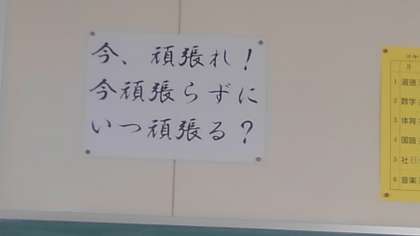 今、頑張れ!
今頑張らずに
いつ頑張る?
1 道徳
2 数学
3 体育
4 国語
5 社
6 音楽